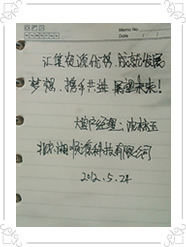 Memo No.
Date
汇集资源优势 成就发展
梦想,携手共进 展望未来!
大客户经理:
北京 科技有限公司
2012.5.24